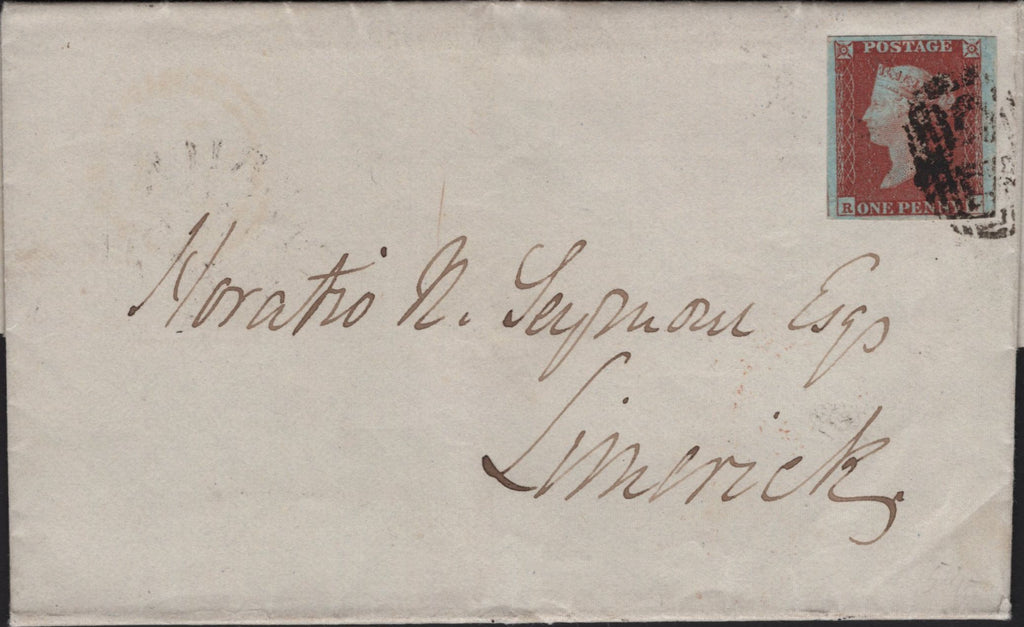 POSTAGE
R ONE PENNY
Horatio N. Seymour Esqr
Limerick.